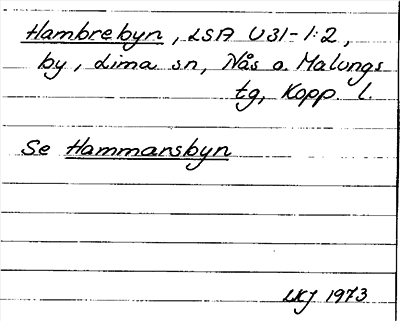 Hambrebyn, LSA U31-1:2,
by, Lima sn, Nås o. Malungs
tg, Kopp. l.
Se Hammansbyn
LKJ 1973